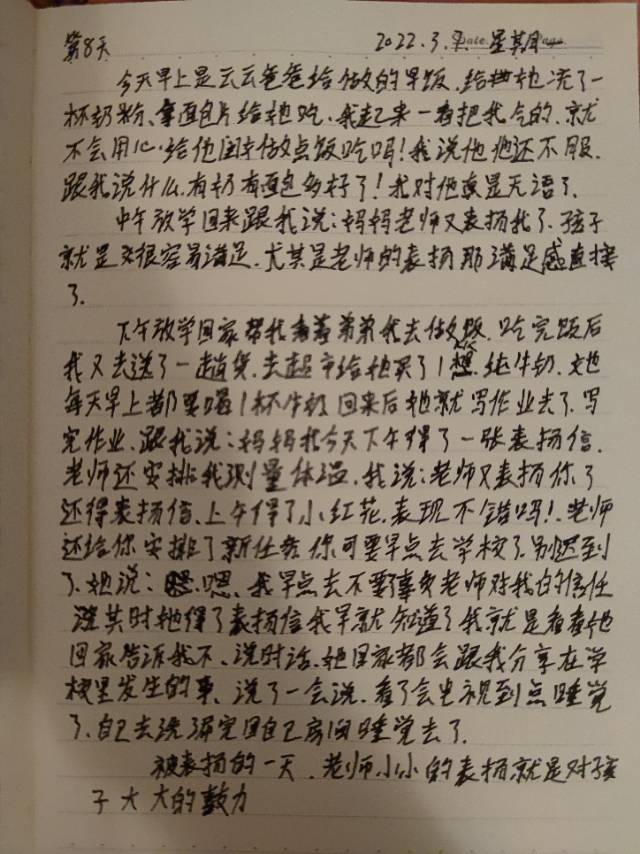 第8天 2022.3.7. Date. 星期一 Page.
今天早上是云云爸爸给做的早饭、给她冲了一
杯奶粉、拿面包片给她吃、我起来一看把我气的、就
不会用心给他闺女做点饭吃吗!我说他他还不服、
跟我说什么有奶有面包多好了!我对他真是无语了、
中午放学回来跟我说:妈妈老师又表扬我了、孩子
就是很容易满足、尤其是老师的表扬那满足感直接
了、
下午放学回家帮我看着弟弟我去做饭、吃完饭后
我又去送了一趟货、去超市给她买了1箱纯牛奶、她
每天早上都要喝1杯牛奶回来后她就写作业去了、写
完作业、跟我说:妈妈我今天下午得了一张表扬信、
老师还安排我测量体温、我说:老师又表扬你了
还得表扬信、上午得了小红花、表现不错吗!、老师
还给你安排了新任务你可要早点去学校了、别迟到
了、她说:嗯嗯、我早点去不要辜负老师对我的信任
其时她得了表扬信我早就知道了我就是看看他
回家告诉我不、说时话、她回家都会跟我分享在学
校里发生的事、说了一会说、看了会电视到点睡觉
了、自己去洗漱完回自己房间睡觉去了、
被表扬的一天、老师小小的表扬就是对孩
子大大的鼓力